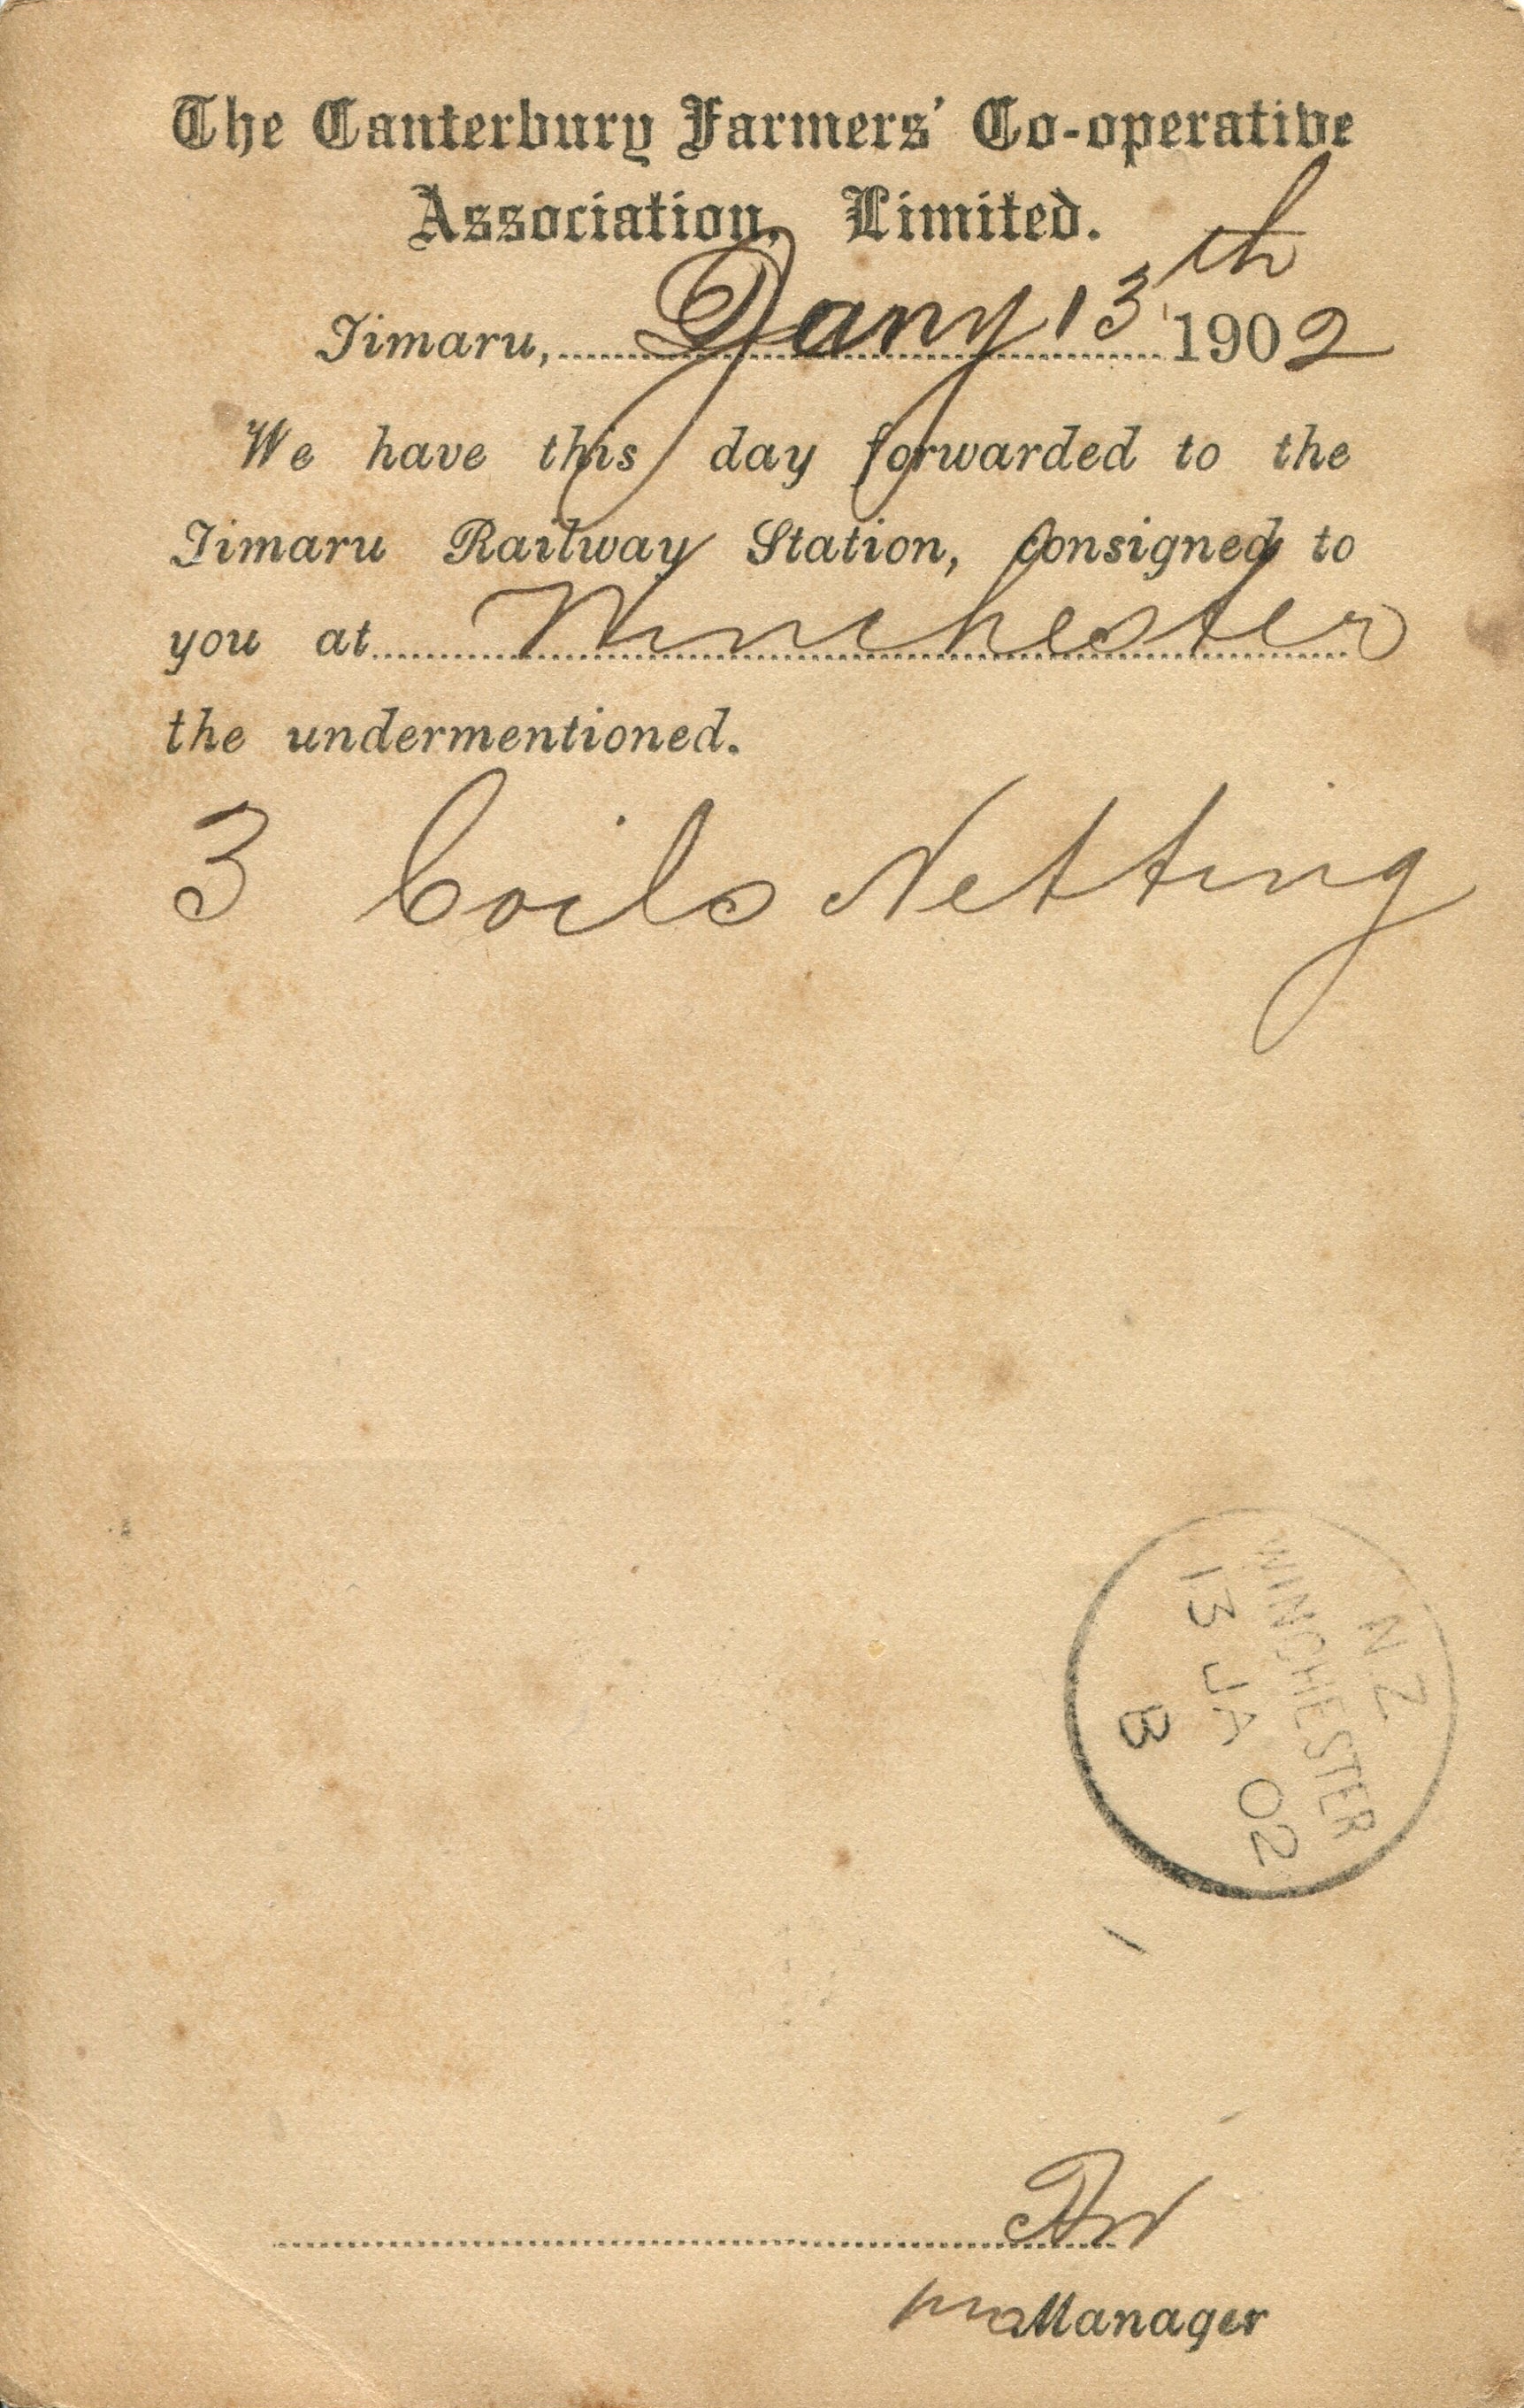 The Canterbury Farmers' Co-operative
Association, Limited.
Timaru, Jany 13th 1902
We have this day forwarded to the
Timaru Railway Station, consigned to
you at Winchester
the undermentioned.
3 Coils Netting
N.Z
WINCHESTER
13 JA 02
B
pro Manager